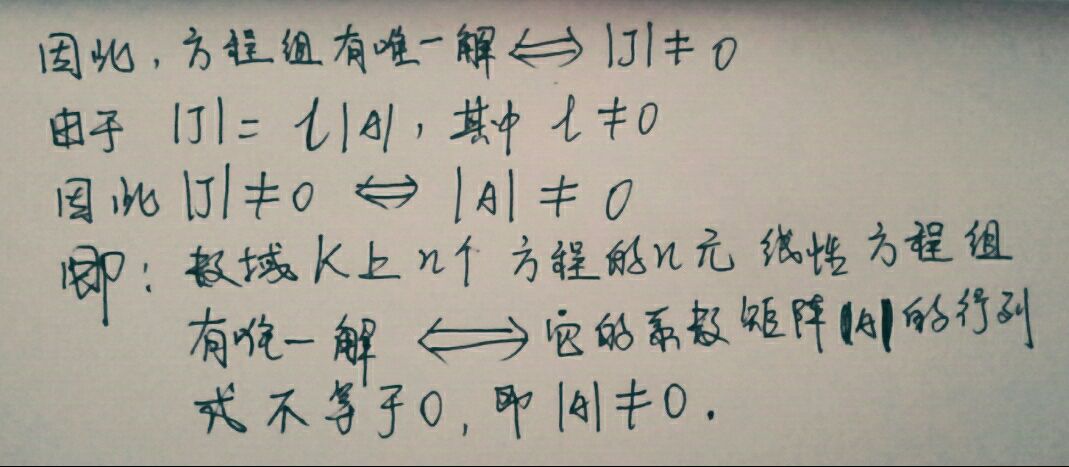 因此，方程组有唯一解⟺|J|≠0
由于 |J|= l|A|，其中 l≠0
因此|J|≠0 ⟺ |A|≠0
即：数域K上n个方程的n元 线性方程组
有唯一解 ⟺ 它的系数矩阵|A|的行列
式不等于0，即|A|≠0.